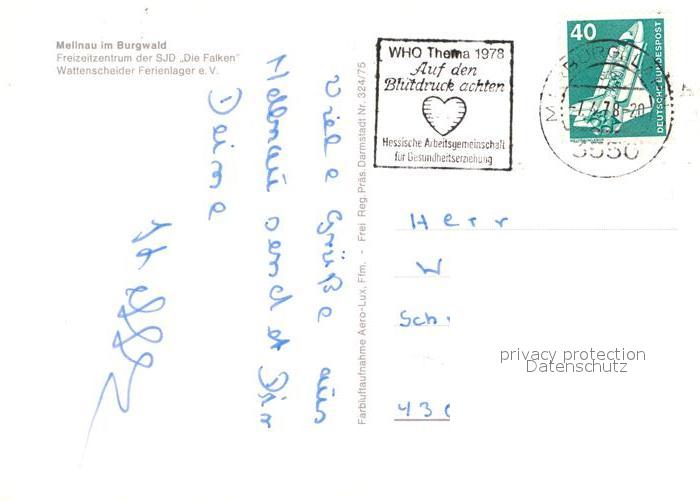 Mellnau im Burgwald
Freizeitzentrum der SJD „Die Falken"
Wattenscheider Ferienlager e. V.
Viele Grüße aus
Mellnau sendet Dir
Deine
Farbluftaufnahme Aero-Lux, Ffm. - Frei Reg. Präs. Darmstadt Nr. 324/75
WHO Thema 1978
Auf den
Blutdruck achten
Hessische Arbeitsgemeinschaft
für Gesundheitserziehung
40
DEUTSCHE BUNDESPOST
3550
Herr
W
Sch
430
privacy protection
Datenschutz